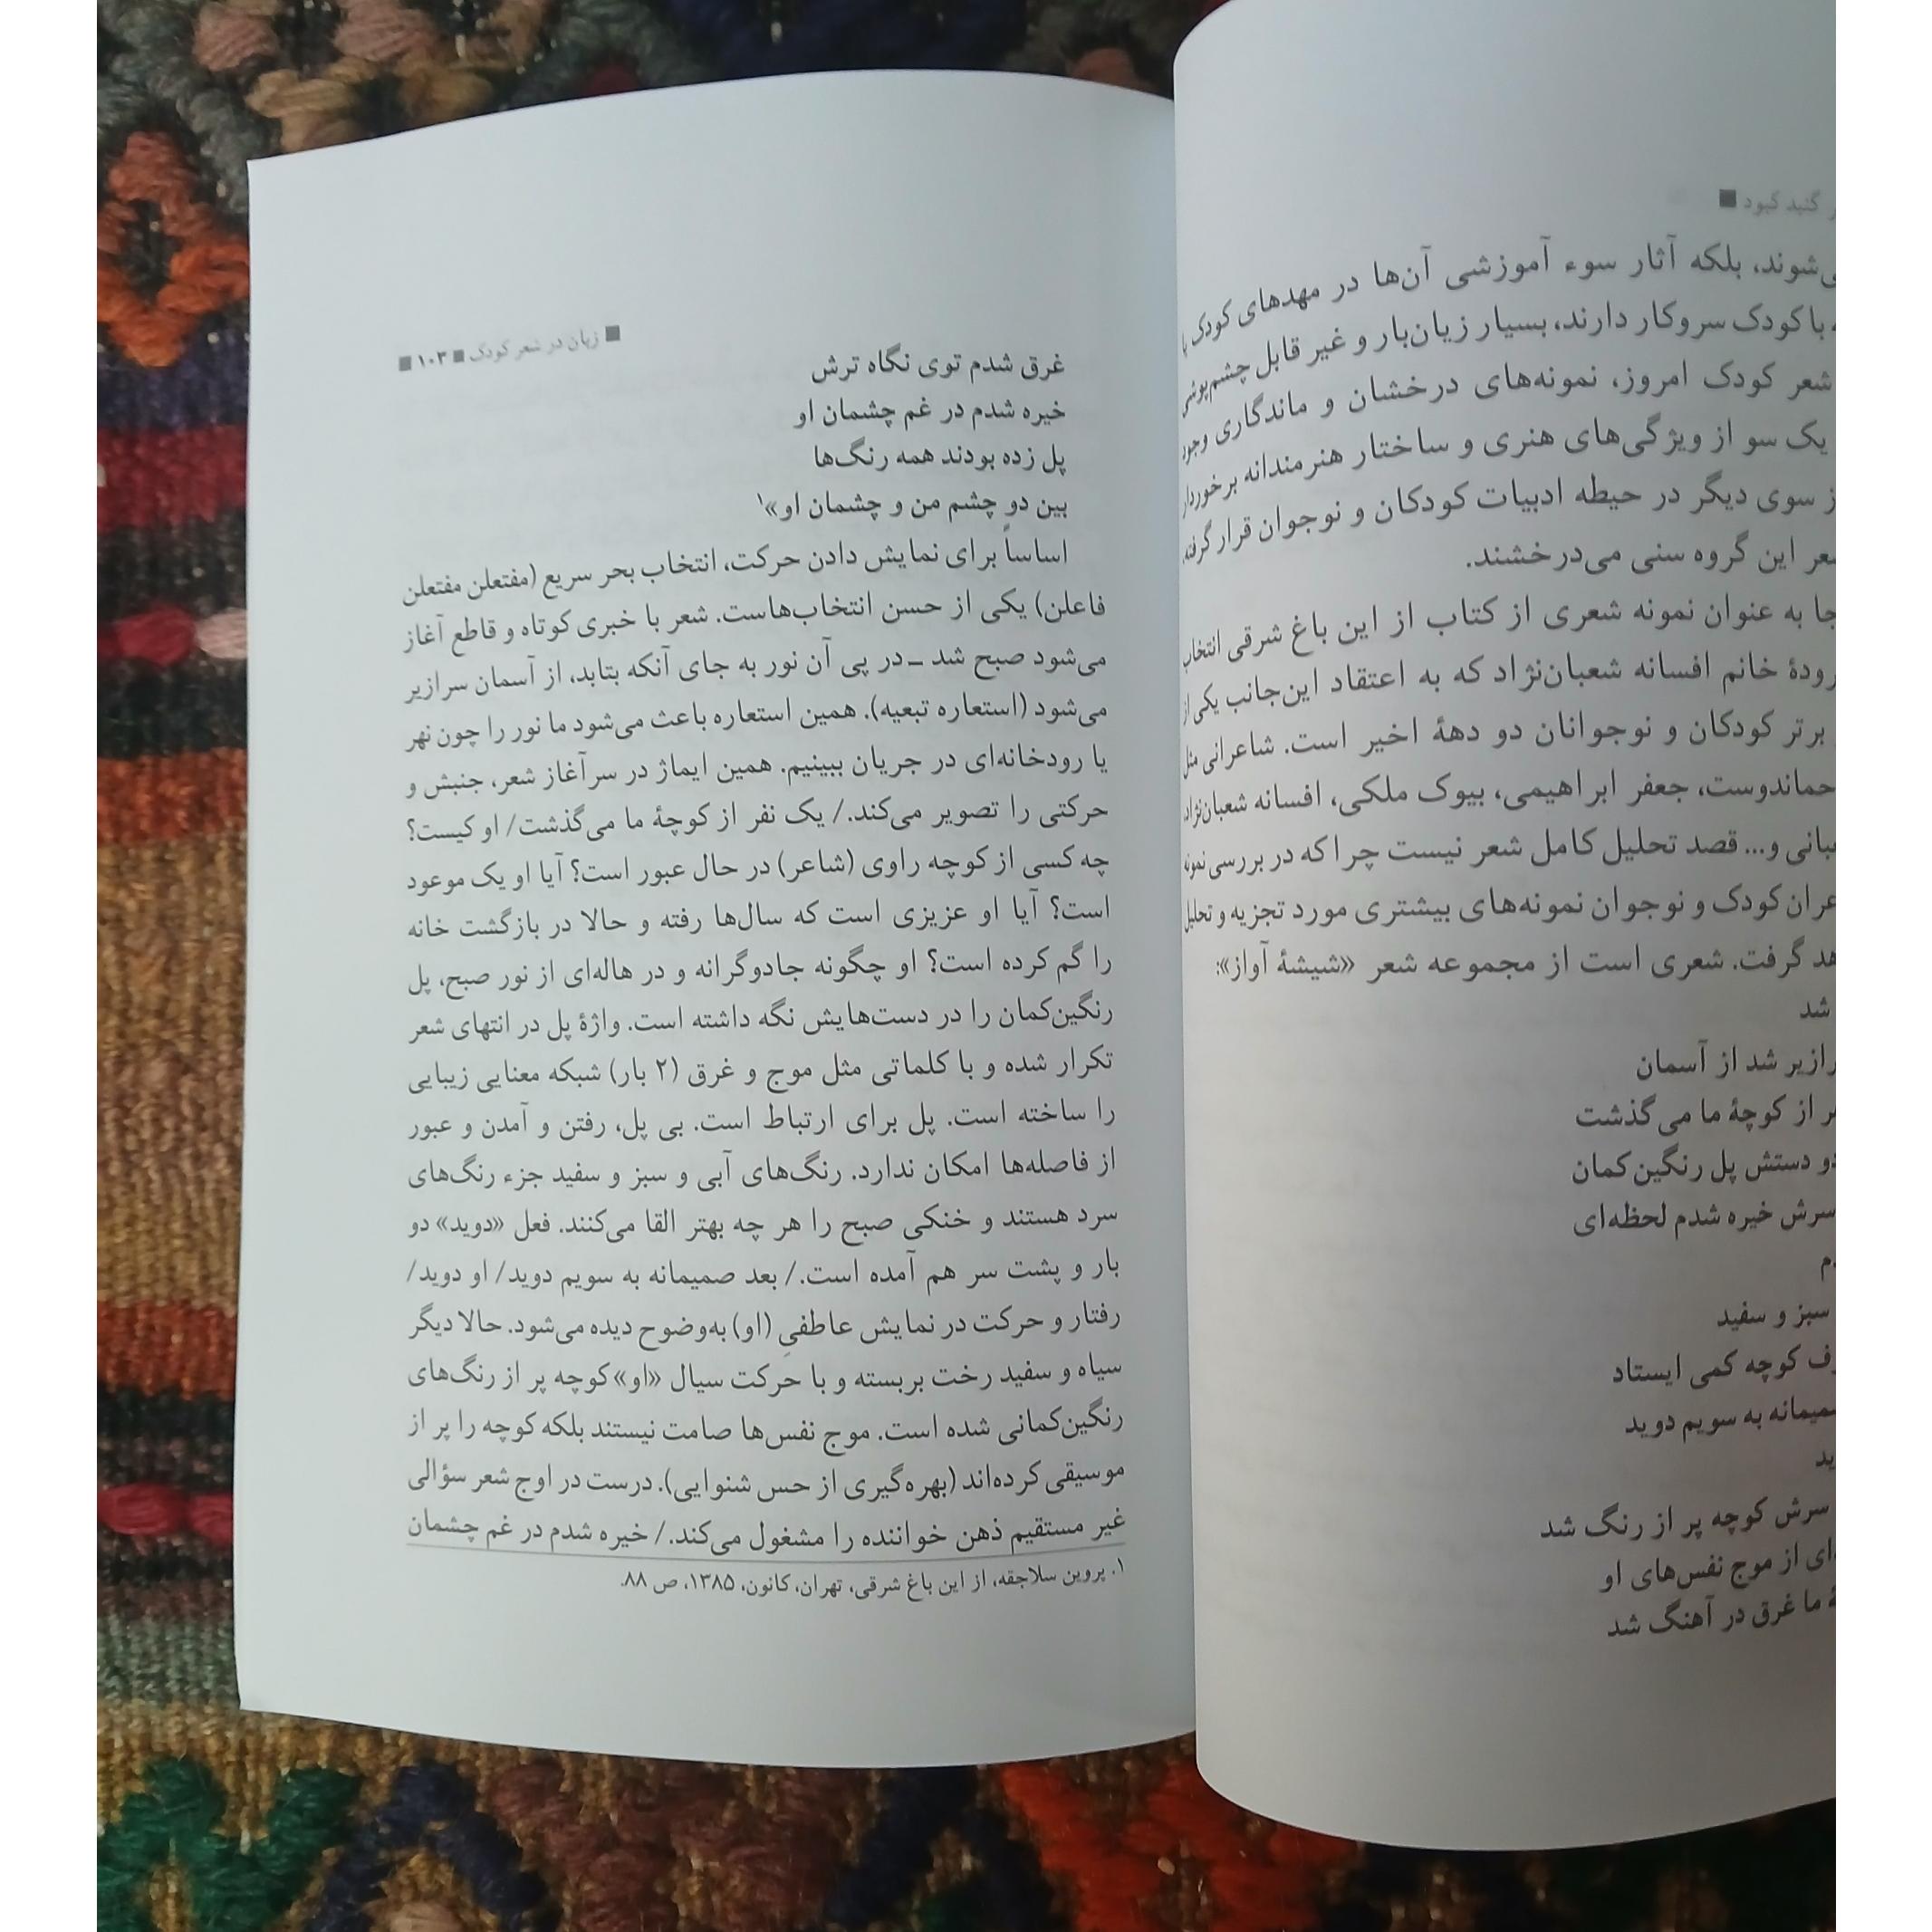 گنبد کبود ■
می‌شوند، بلکه آثار سوء آموزشی آن‌ها در مهدهای کودک یا
با کودک سروکار دارند، بسیار زیان‌بار و غیر قابل چشم‌پوشی
شعر کودک امروز، نمونه‌های درخشان و ماندگاری وجود
یک سو از ویژگی‌های هنری و ساختار هنرمندانه برخوردار
از سوی دیگر در حیطه ادبیات کودکان و نوجوان قرار گرفته،
شعر این گروه سنی می‌درخشند.
به عنوان نمونه شعری از کتاب از این باغ شرقی انتخاب
خانم افسانه شعبان‌نژاد که به اعتقاد این‌جانب یکی از
برتر کودکان و نوجوانان دو دههٔ اخیر است. شاعرانی مثل
جعفر ابراهیمی، بیوک ملکی، افسانه شعبان‌نژاد،
و... قصد تحلیل کامل شعر نیست چرا که در بررسی نمونه
کودک و نوجوان نمونه‌های بیشتری مورد تجزیه و تحلیل
گرفت. شعری است از مجموعه شعر «شیشهٔ آواز»:
شد
شد از آسمان
از کوچهٔ ما می‌گذشت
دو دستش پل رنگین‌کمان
سرش خیره شدم لحظه‌ای
سبز و سفید
کوچه کمی ایستاد
به سویم دوید
سرش کوچه پر از رنگ شد
از موج نفس‌های او
ما غرق در آهنگ شد
■ زبان در شعر کودک ■ ۱۰۳ ■
غرق شدم توی نگاه ترش
خیره شدم در غم چشمان او
پل زده بودند همه رنگ‌ها
بین دو چشم من و چشمان او»۱
اساساً برای نمایش دادن حرکت، انتخاب بحر سریع (مفتعلن مفتعلن
فاعلن) یکی از حسن انتخاب‌هاست. شعر با خبری کوتاه و قاطع آغاز
می‌شود صبح شد ــ در پی آن نور به جای آنکه بتابد، از آسمان سرازیر
می‌شود (استعاره تبعیه). همین استعاره باعث می‌شود ما نور را چون نهر
یا رودخانه‌ای در جریان ببینیم. همین ایماژ در سرآغاز شعر، جنبش و
حرکتی را تصویر می‌کند./ یک نفر از کوچهٔ ما می‌گذشت/ او کیست؟
چه کسی از کوچه راوی (شاعر) در حال عبور است؟ آیا او یک موعود
است؟ آیا او عزیزی است که سال‌ها رفته و حالا در بازگشت خانه
را گم کرده است؟ او چگونه جادوگرانه و در هاله‌ای از نور صبح، پل
رنگین‌کمان را در دست‌هایش نگه داشته است. واژهٔ پل در انتهای شعر
تکرار شده و با کلماتی مثل موج و غرق (۲ بار) شبکه معنایی زیبایی
را ساخته است. پل برای ارتباط است. بی پل، رفتن و آمدن و عبور
از فاصله‌ها امکان ندارد. رنگ‌های آبی و سبز و سفید جزء رنگ‌های
سرد هستند و خنکی صبح را هر چه بهتر القا می‌کنند. فعل «دوید» دو
بار و پشت سر هم آمده است./ بعد صمیمانه به سویم دوید/ او دوید/
رفتار و حرکت در نمایش عاطفیِ (او) به‌وضوح دیده می‌شود. حالا دیگر
سیاه و سفید رخت بربسته و با حرکت سیال «او» کوچه پر از رنگ‌های
رنگین‌کمانی شده است. موج نفس‌ها صامت نیستند بلکه کوچه را پر از
موسیقی کرده‌اند (بهره‌گیری از حس شنوایی). درست در اوج شعر سؤالی
غیر مستقیم ذهن خواننده را مشغول می‌کند./ خیره شدم در غم چشمان
۱. پروین سلاجقه، از این باغ شرقی، تهران، کانون، ۱۳۸۵، ص ۸۸.